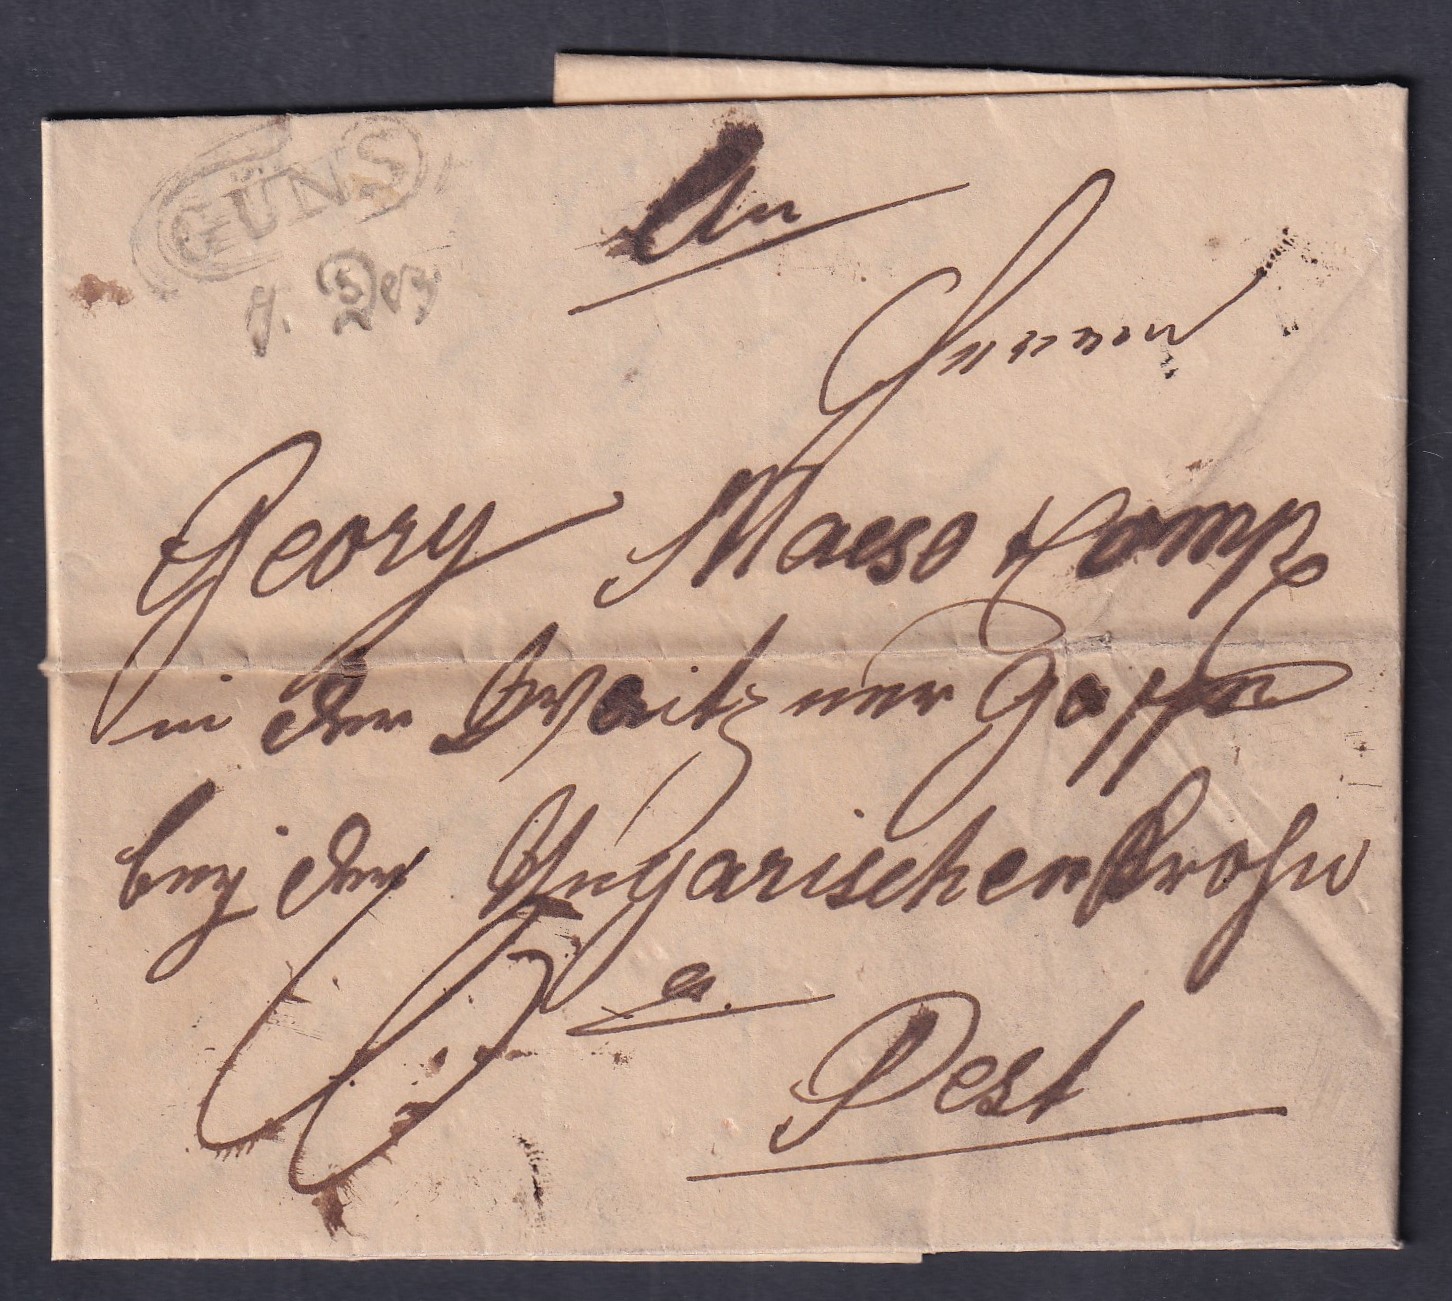 GÜNS
9. Dez
An
Herrn
Georg Maeso Comp
in der Waitzner Gasse
bey der Ungarischen Krohn
a.
Pest